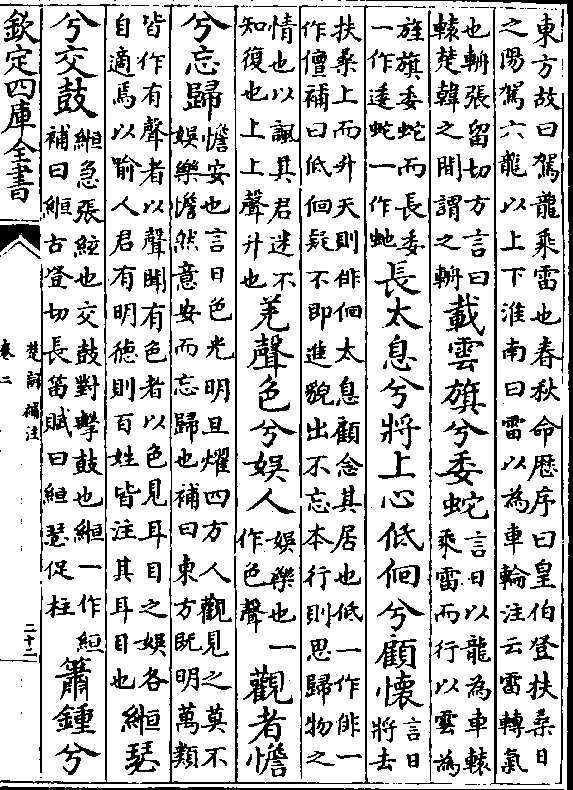 東方故曰駕龍乘雷也春秋命歴序曰皇伯登扶桑日
之陽駕六龍以上下淮南曰雷以為車輪注云雷轉氣
也輈張留切方言曰
轅楚韓之間謂之輈
載雲旗兮委蛇
言日以龍為車轅
乘雷而行以雲為
旌旗委蛇而長委
一作逶蛇一作虵
長太息兮將上心低佪兮顧懷
言日
將去
扶桑上而升天則俳佪太息顧念其居也低一作俳一
作儃補曰低佪疑不即進貌出不忘本行則思歸物之
情也以諷其君迷不
知復也上上聲升也
羌聲色兮娛人
娛樂也一
作色聲
觀者憺
兮忘歸
憺安也言日色光明旦燿四方人觀見之莫不
娛樂憺然意安而忘歸也補曰東方既明萬類
皆作有聲者以聲聞有色者以色見耳目之娛各
自適焉以喻人君有明徳則百姓皆注其耳目也
縆瑟
兮交鼓
縆急張絃也交鼓對擊鼓也縆一作絙
補曰縆古登切長笛賦曰絙瑟促柱
簫鍾兮
欽定四庫全書
楚詞補注
卷二
二十二